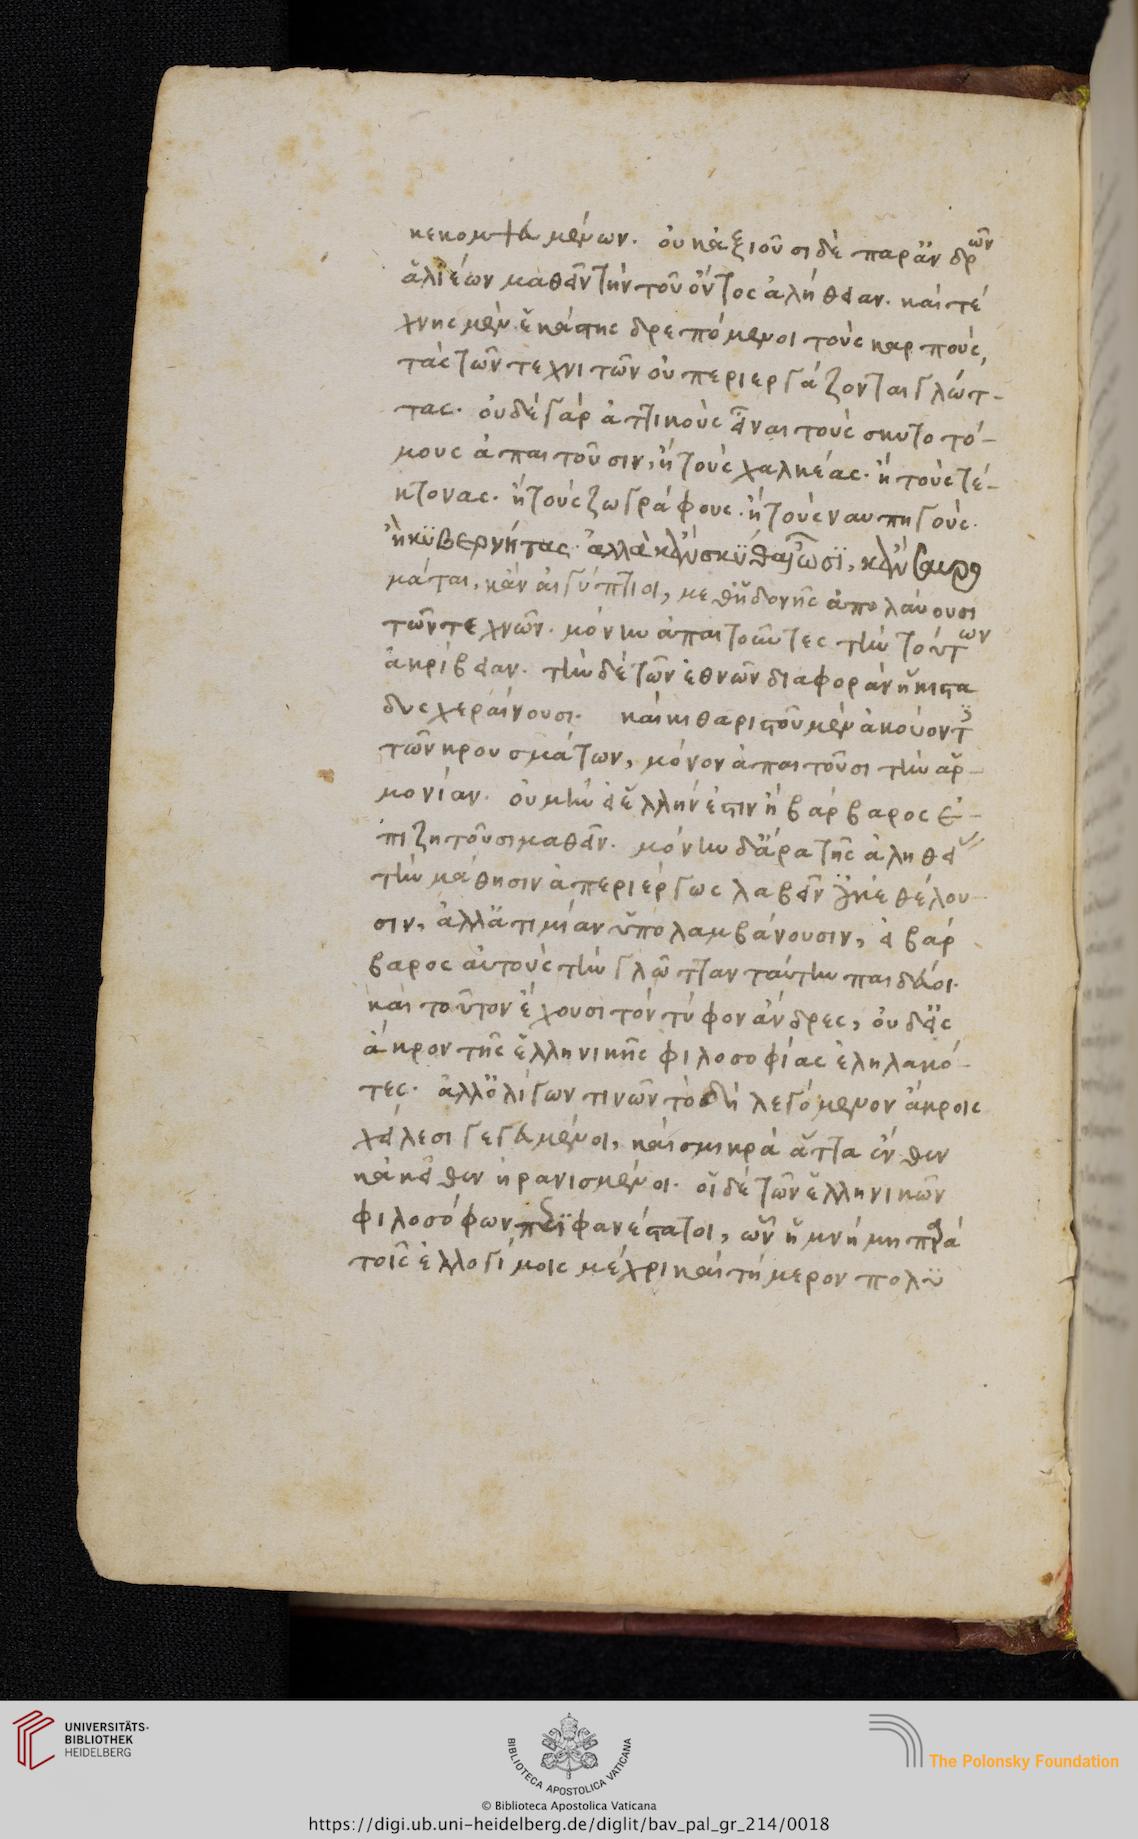 κεκομψευμένων. οὐκ ἀξιοῦσι δὲ παρ' ἀνδρῶν
ἁλιέων μαθεῖν τὴν τοῦ ὄντος ἀλήθειαν. καὶ τέ
χνης μὲν ἑκάστης δρεπόμενοι τοὺς καρποὺς,
τὰς τῶν τεχνιτῶν οὐ περιεργάζονται γλώτ-
τας. οὐδὲ γὰρ ἀττικοὺς εἶναι τοὺς σκυτοτό-
μους ἀπαιτοῦσιν, ἢ τοὺς χαλκέας. ἢ τοὺς τέ-
κτονας. ἢ τοὺς ζωγράφους. ἢ τοὺς ναυπηγοὺς.
ἢ κυβερνήτας. ἀλλὰ κἂν σκύθαι ὦσι, κἂν σαυρο
μάται, κἂν αἰγύπτιοι, μεθ' ἡδονῆς ἀπολαύουσι
τῶν τεχνῶν. μόνην ἀπαιτοῦντες τὴν τούτων
ἀκρίβειαν. τὴν δὲ τῶν ἐθνῶν διαφορὰν ἥκιστα
δυσχεραίνουσι. καὶ κιθαριστοῦ μὲν ἀκούοντες
τῶν κρουσμάτων, μόνον ἀπαιτοῦσι τὴν ἁρ-
μονίαν. οὐ μὴν εἰ ἕλλην ἐστὶν ἢ βάρβαρος ἐ-
πιζητοῦσι μαθεῖν. μόνην δ' ἄρα τῆς ἀληθείας
τὴν μάθησιν ἀπεριέργως λαβεῖν οὐκ ἐθέλου-
σιν, ἀλλ' ἀτιμίαν ὑπολαμβάνουσιν, εἰ βάρ
βαρος αὐτοὺς τὴν γλῶτταν ταύτην παιδεύοι.
καὶ τοῦτον ἔχουσι τὸν τύφον ἄνδρες, οὐδ' εἰς
ἄκρον τῆς ἑλληνικῆς φιλοσοφίας ἐληλακό-
τες. ἀλλ' ὀλίγων τινῶν τὸ δὴ λεγόμενον ἄκροις
χείλεσι γεγευμένοι, καὶ σμικρὰ ἄττα ἔνθεν
κἀκεῖθεν ἠρανισμένοι. οἱ δέ τῶν ἑλληνικῶν
φιλοσόφων περιφανέστατοι, ὧν ἡ μνήμη παρὰ
τοῖς ἐλλογίμοις μέχρι καὶ τήμερον πολὺ
UNIVERSITÄTS-
BIBLIOTHEK
HEIDELBERG
BIBLIOTECA APOSTOLICA VATICANA
The Polonsky Foundation
© Biblioteca Apostolica Vaticana
https://digi.ub.uni-heidelberg.de/diglit/bav_pal_gr_214/0018